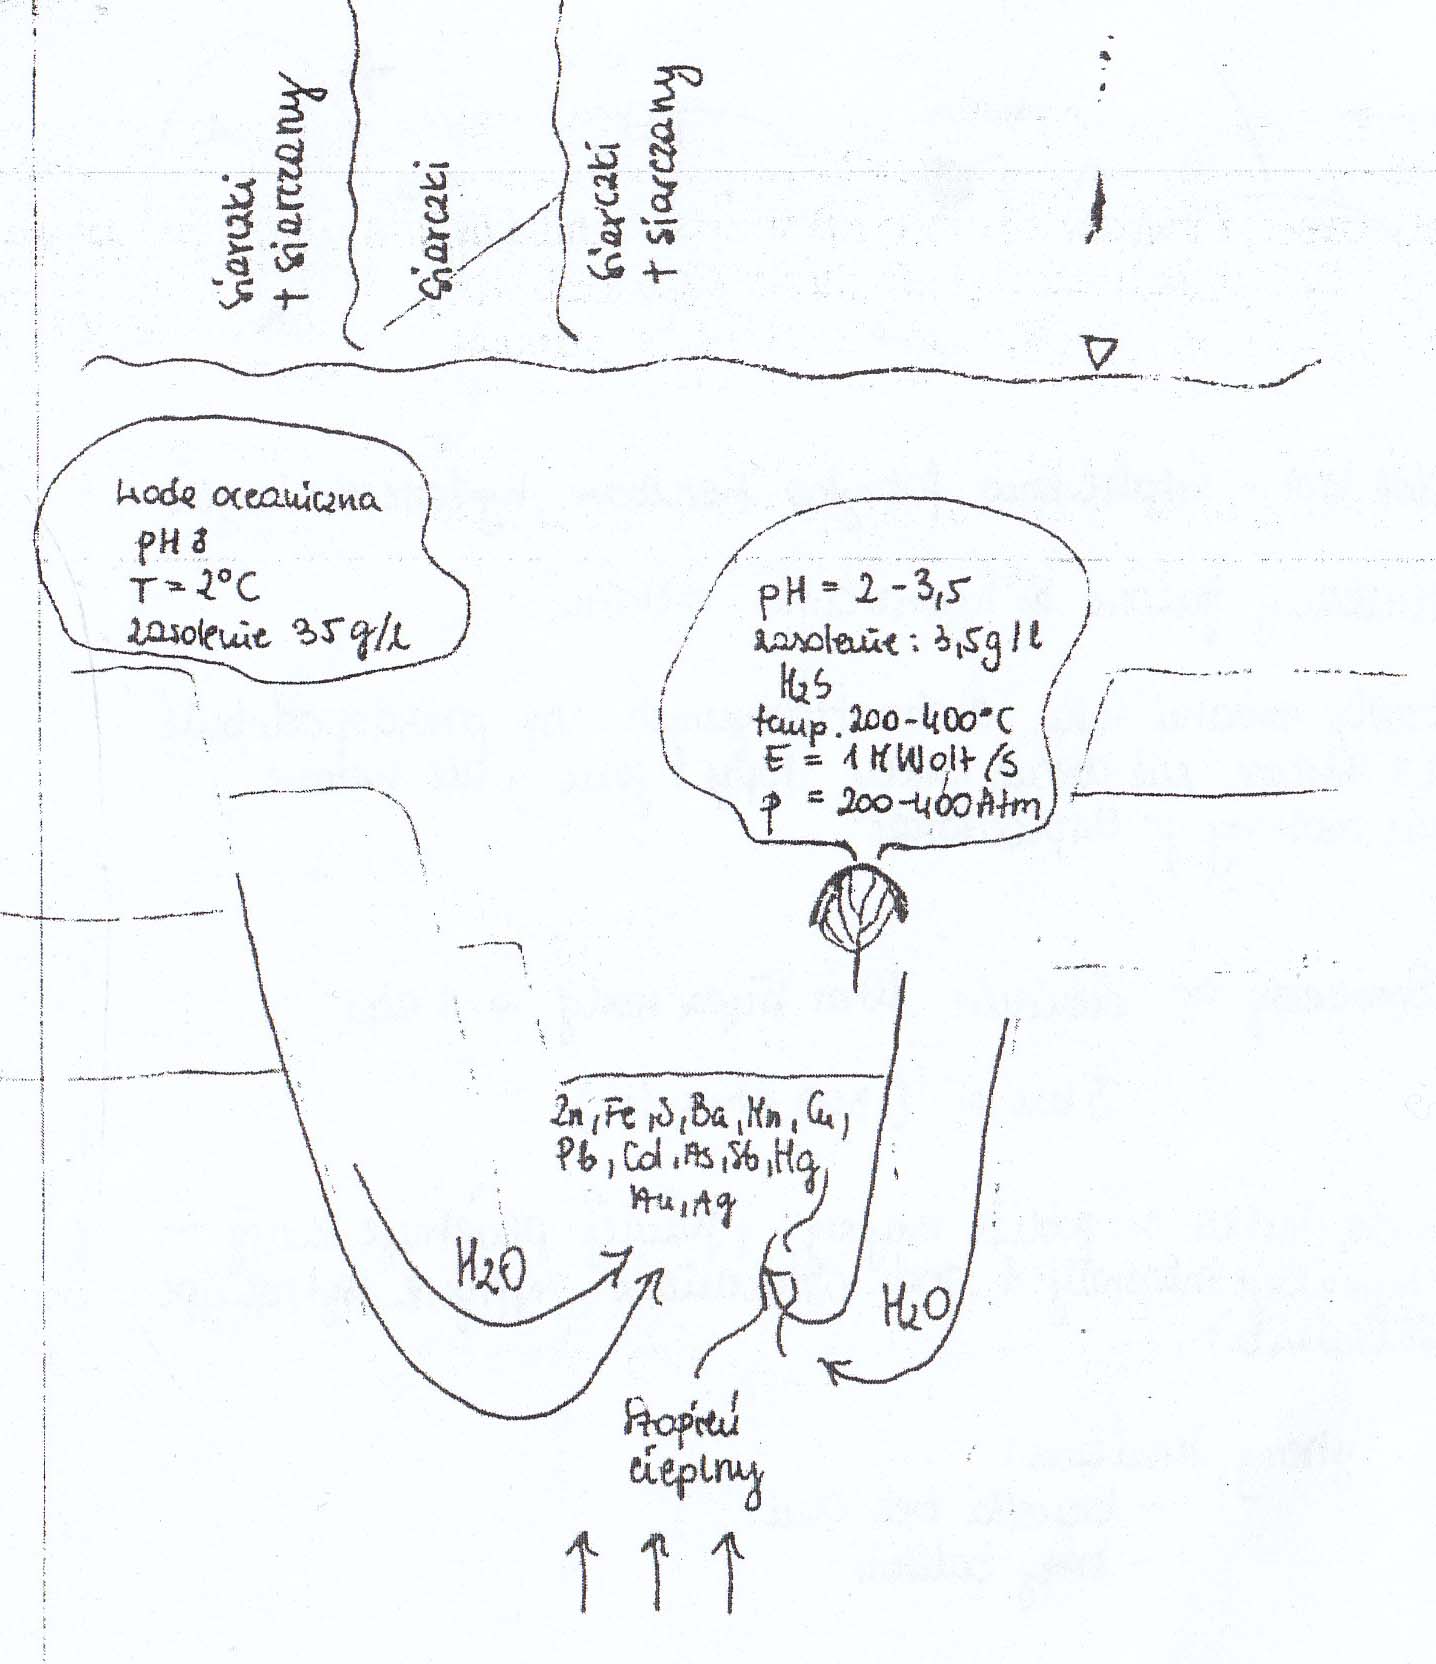 siarczki
+ siarczany
siarczki
siarczki
+ siarczany
Woda oceaniczna
pH 8
T = 2°C
zasolenie 35 g/l
pH = 2 - 3,5
zasolenie: 3,5 g/l
H2S
temp. 200-400°C
E = 1 MWolt/s
p = 200-400 Atm
Zn, Fe, S, Ba, Mn, Cu,
Pb, Cd, As, Sb, Hg,
Au, Ag
H2O
H2O
Stopień
cieplny